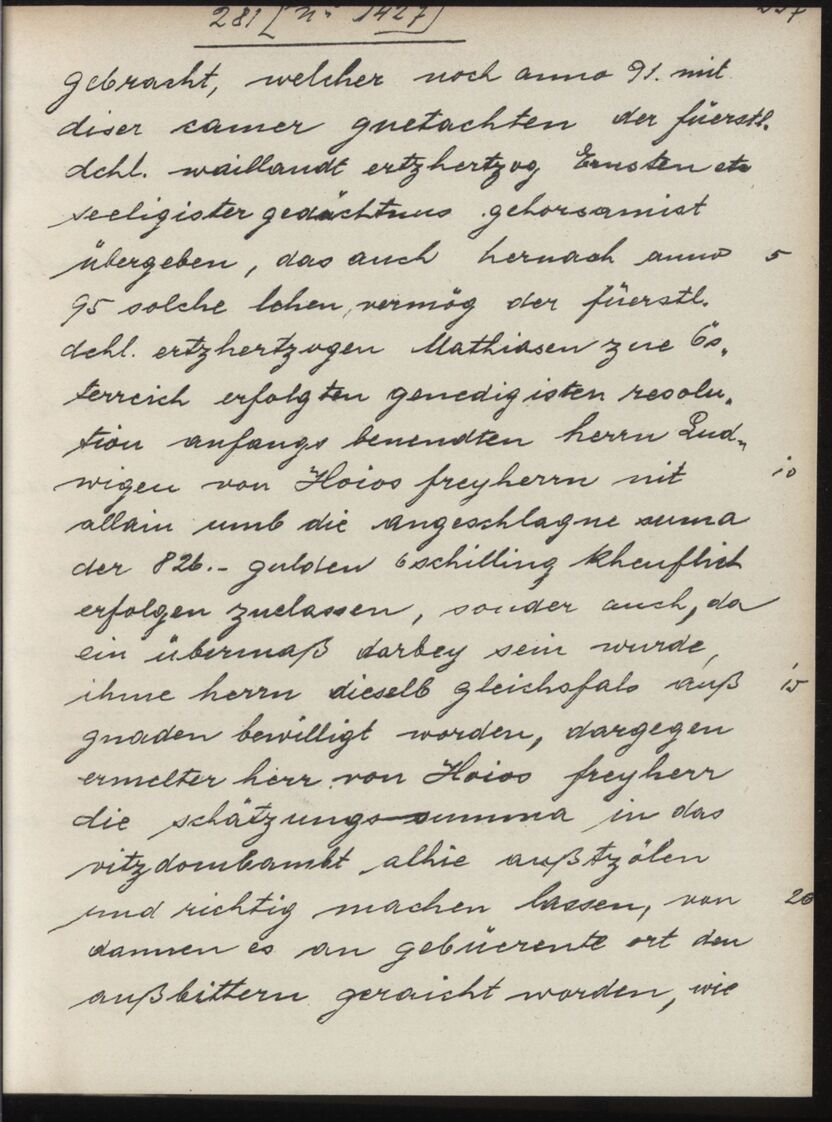 281 [Nr. 1427]
gebracht, welcher noch anno 91. mit
diser camer guetachten der füerstl.
dchl. waillandt ertzhertzog Ernsten etc
seeligister gedächtnus gehorsamist
übergeben, das auch hernach anno 5
95 solche lehen, vermög der füerstl.
dchl. ertzhertzogen Mathiasen zue Ös-
terreich erfolgten genedigisten resolu-
tion anfangs benendten herrn Lud-
wigen von Hoios freyherrn nit 10
allain umb die angeschlagne suma
der 826.- gulden 6 schilling kheuflich
erfolgen zuelassen, sonder auch, da
ein übermaß darbey sein wurde,
ihme herrn dieselb gleichsfals auß 15
gnaden bewilligt worden, dargegen
ermelter herr von Hoios freyherr
die schätzungs-summa in das
vitzdombambt alhie außtzölen
und richtig machen lassen, von 20
dannen es an gebüerente ort den
außbittern geraicht worden, wie